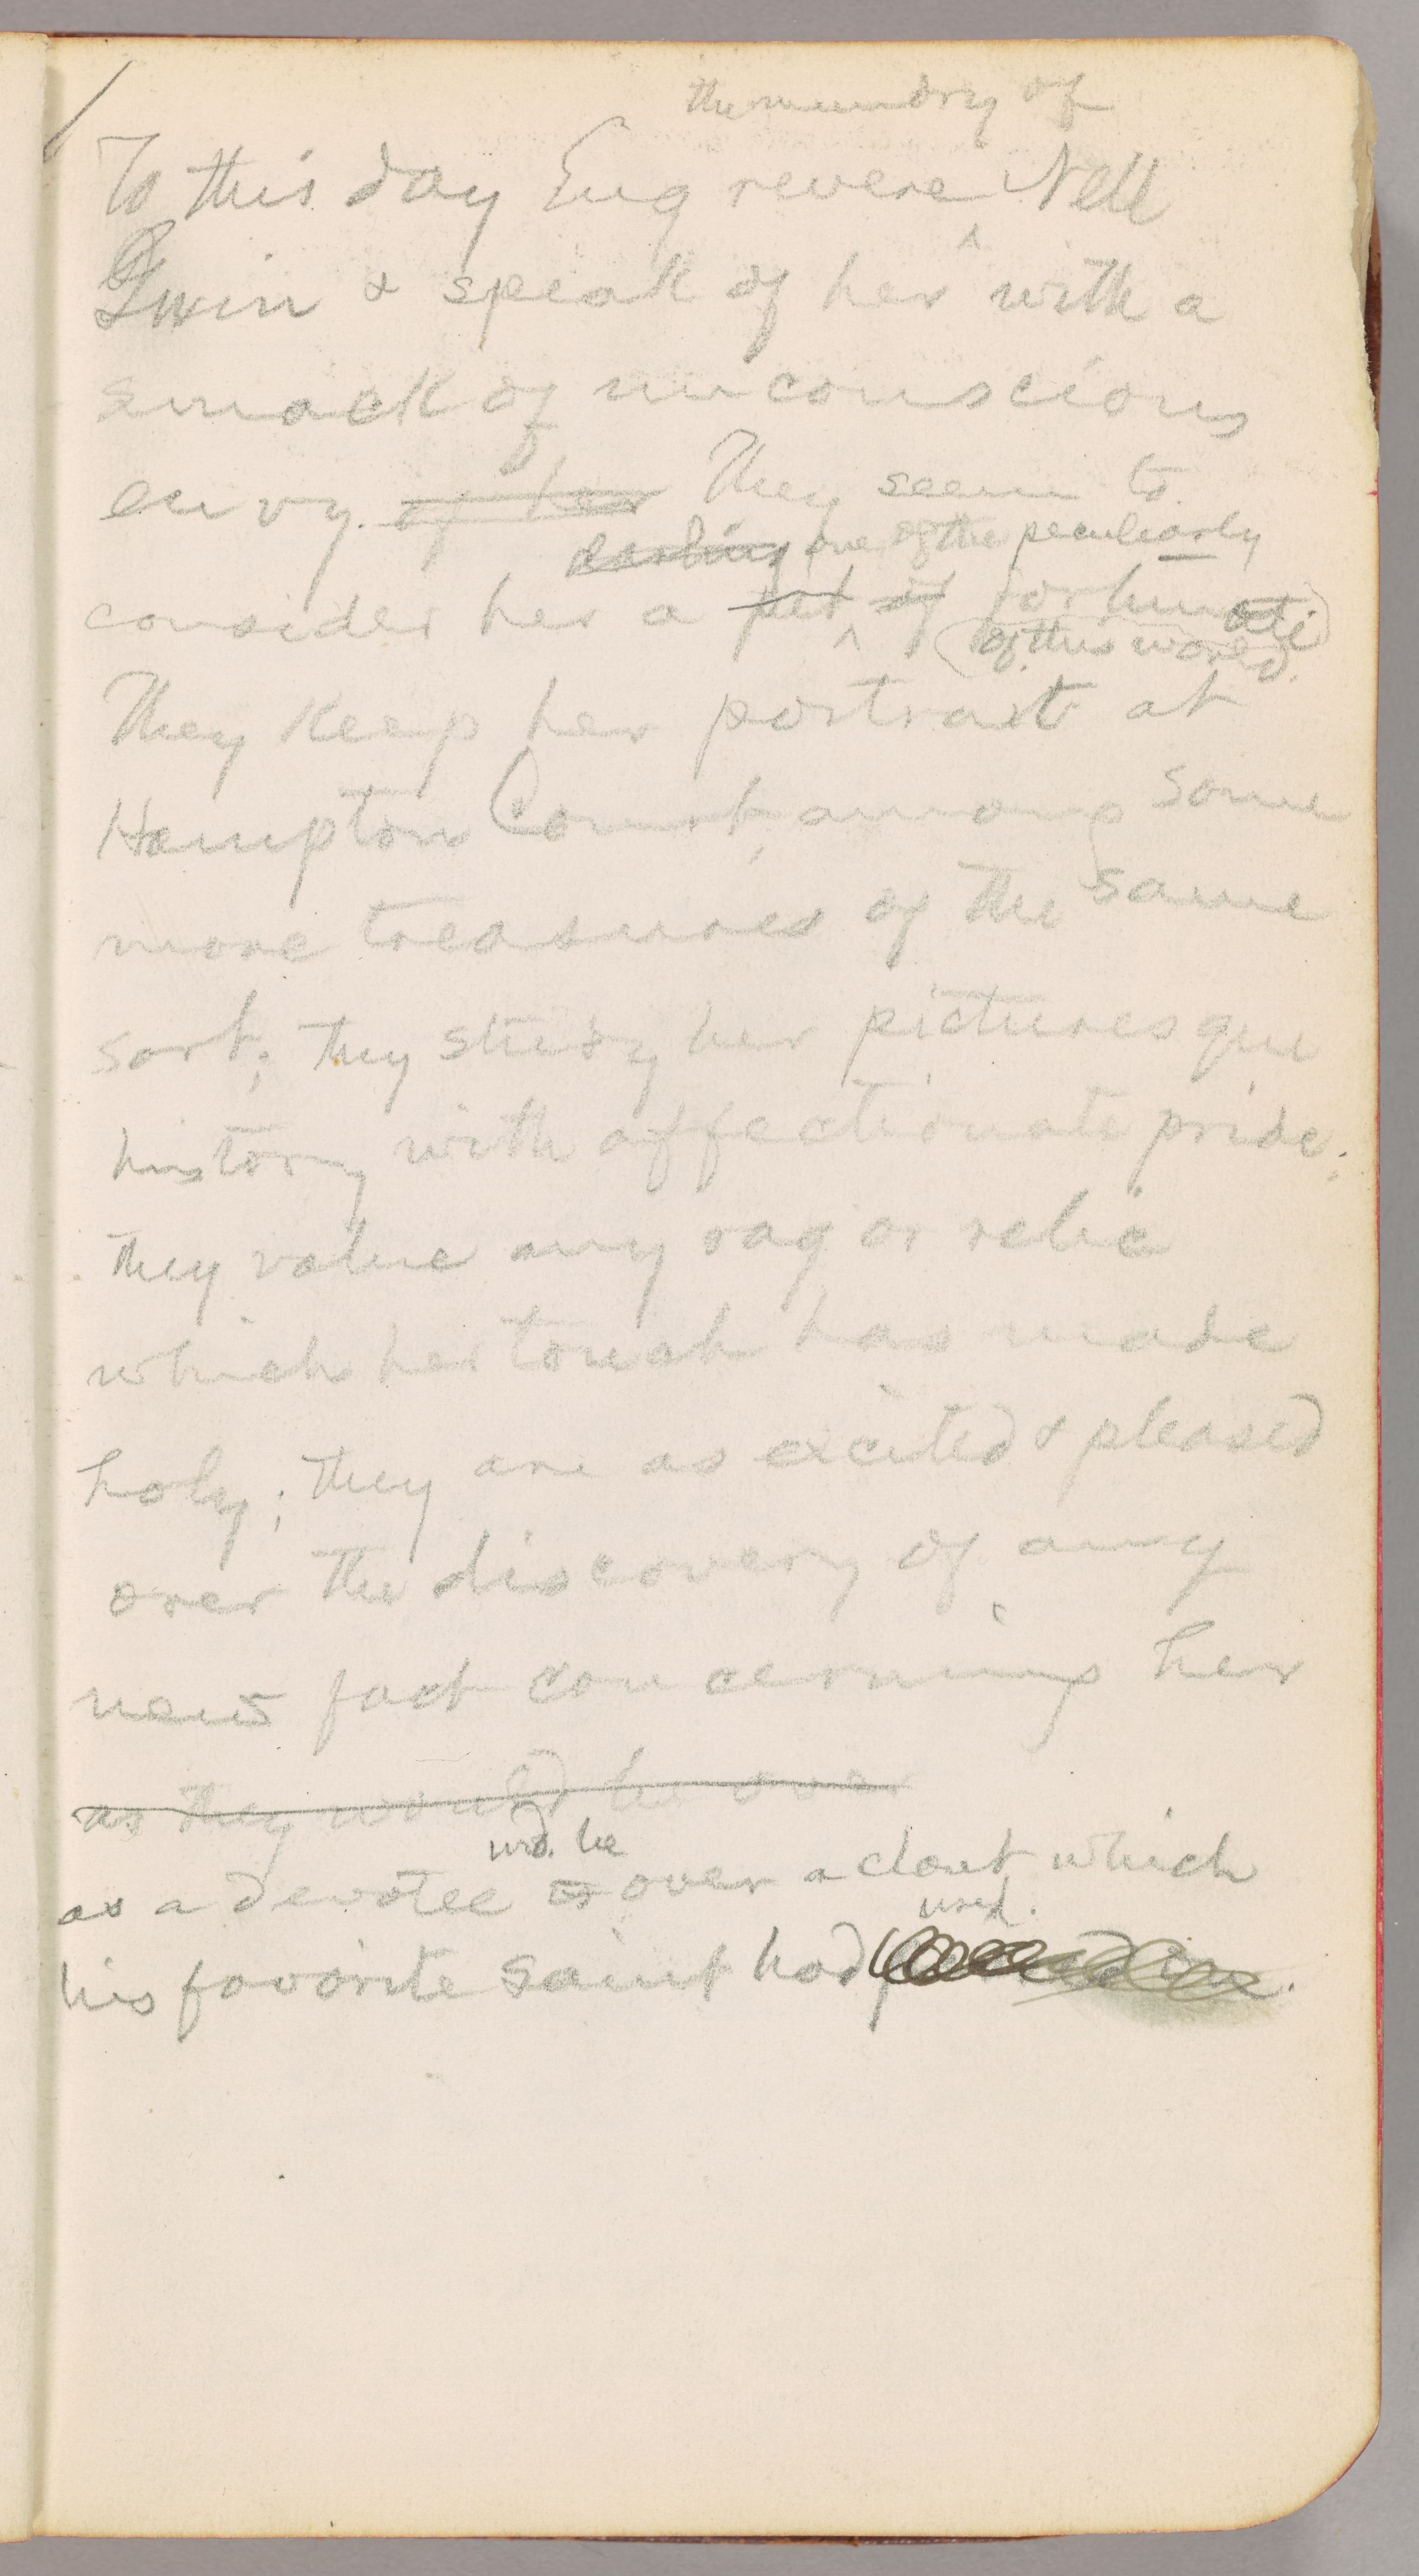 the memory of
To this day Eng revere Nell
Gwin & speak of her with a
smack of unconscious
envy. of her They seem to
darling, one of the peculiarly
consider her a pet of fortunate
of this world.
They keep her portrait at
Hampton Court, among some
more treasures of the same
sort; they study her picturesque
history with affectionate pride;
they value any rag or relic
which her touch has made
holy; they are as excited & pleased
over the discovery of any
new fact concerning her
as they would be over
wd. be
as a devotee is over a clout which
used.
his favorite saint had